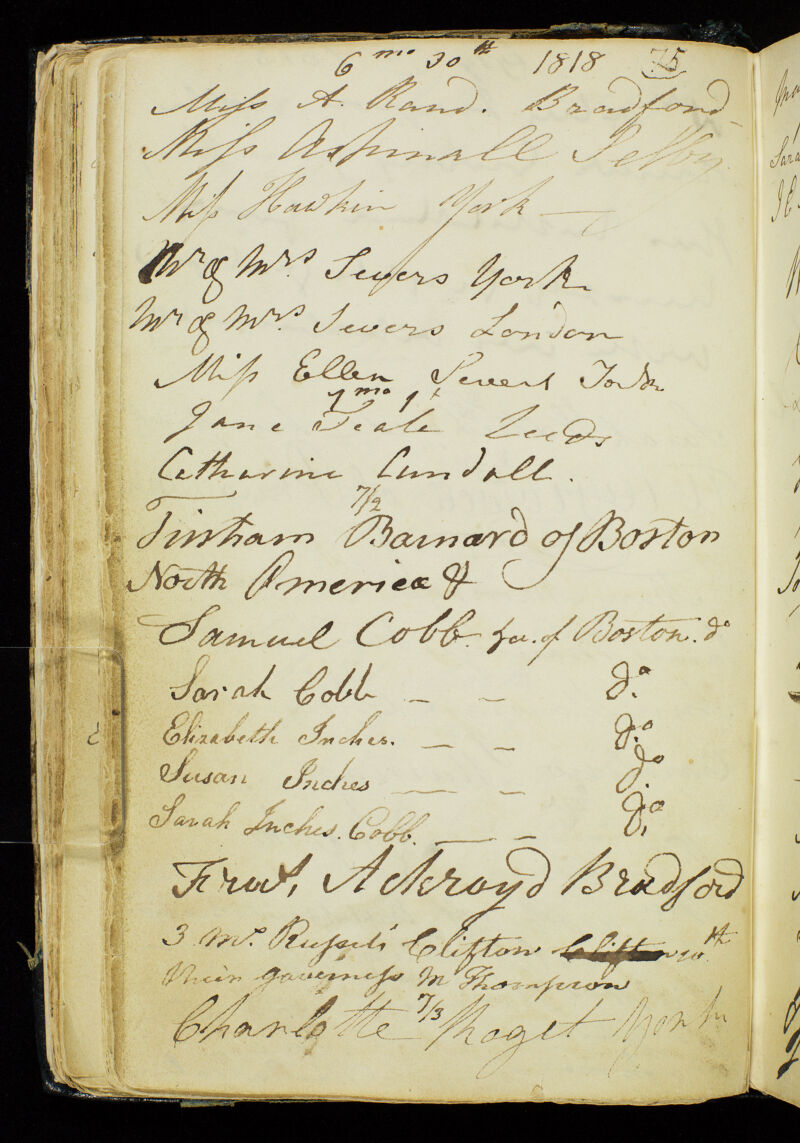 6 mo 30th 1818 75
Miss A. Rand. Bradford
Miss Aspinall Selby.
Miss Hawkin York
Mr & Mrs Severs York
Mr & Mrs. Severs London
Miss Ellen Severs York
7 mo 1st
Jane Teale Leeds
Catharine Cundall.
7/2
Barnard of Boston
North America &
Samuel Cobb of Boston. do
Sarah Cobb — — do.
Elizabeth Inches. — — do.
Susan Inches — — do.
Sarah Inches. Cobb. — — do.
Ackroyd Bradford
3 Clifton Clifton
their governess M Thompson
7/3
Charlotte Roget York